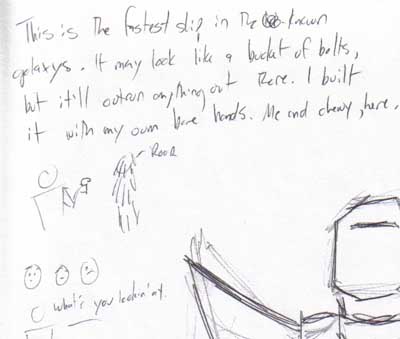 This is the fastest ship in the known
galaxys. It may look like a bucket of bolts,
but it'll outrun anything out there. I built
it with my own bare hands. Me and chewy, here.
ROOR
what's you lookin' at.